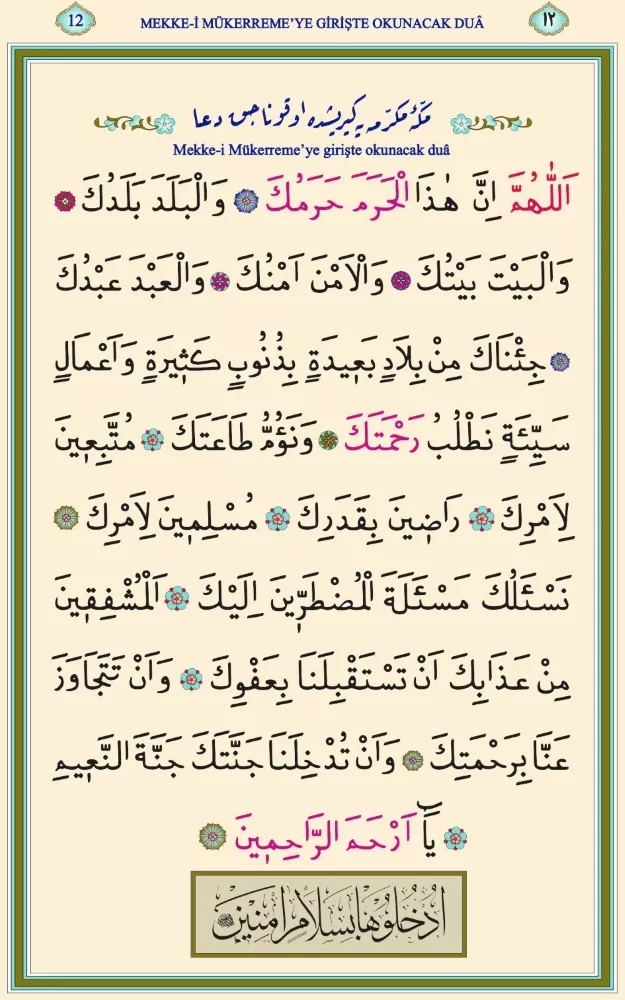 12 MEKKE-İ MÜKERREME’YE GİRİŞTE OKUNACAK DUÂ ١٢
مكّۀ مكرّمه يه كيريشده اوقوناجق دعا
Mekke-i Mükerreme’ye girişte okunacak duâ
اَللّٰهُمَّ اِنَّ هٰذَا الْحَرَمَ حَرَمُكَ وَالْبَلَدَ بَلَدُكَ
وَالْبَيْتَ بَيْتُكَ وَالْاَمْنَ اَمْنُكَ وَالْعَبْدَ عَبْدُكَ
جِئْنَاكَ مِنْ بِلَادٍ بَعِيدَةٍ بِذُنُوبٍ كَثِيرَةٍ وَاَعْمَالٍ
سَيِّئَةٍ نَطْلُبُ رَحْمَتَكَ وَنَؤُمُّ طَاعَتَكَ مُتَّبِعِينَ
لِاَمْرِكَ رَاضِينَ بِقَدَرِكَ مُسْلِمِينَ لِاَمْرِكَ
نَسْئَلُكَ مَسْئَلَةَ الْمُضْطَرِّينَ اِلَيْكَ اَلْمُشْفِقِينَ
مِنْ عَذَابِكَ اَنْ تَسْتَقْبِلَنَا بِعَفْوِكَ وَاَنْ تَتَجَاوَزَ
عَنَّا بِرَحْمَتِكَ وَاَنْ تُدْخِلَنَا جَنَّتَكَ جَنَّةَ النَّعِيمِ
يَٓا اَرْحَمَ الرَّاحِمِينَ
اُدْخُلُوهَا بِسَلَامٍ اٰمِنِينَ